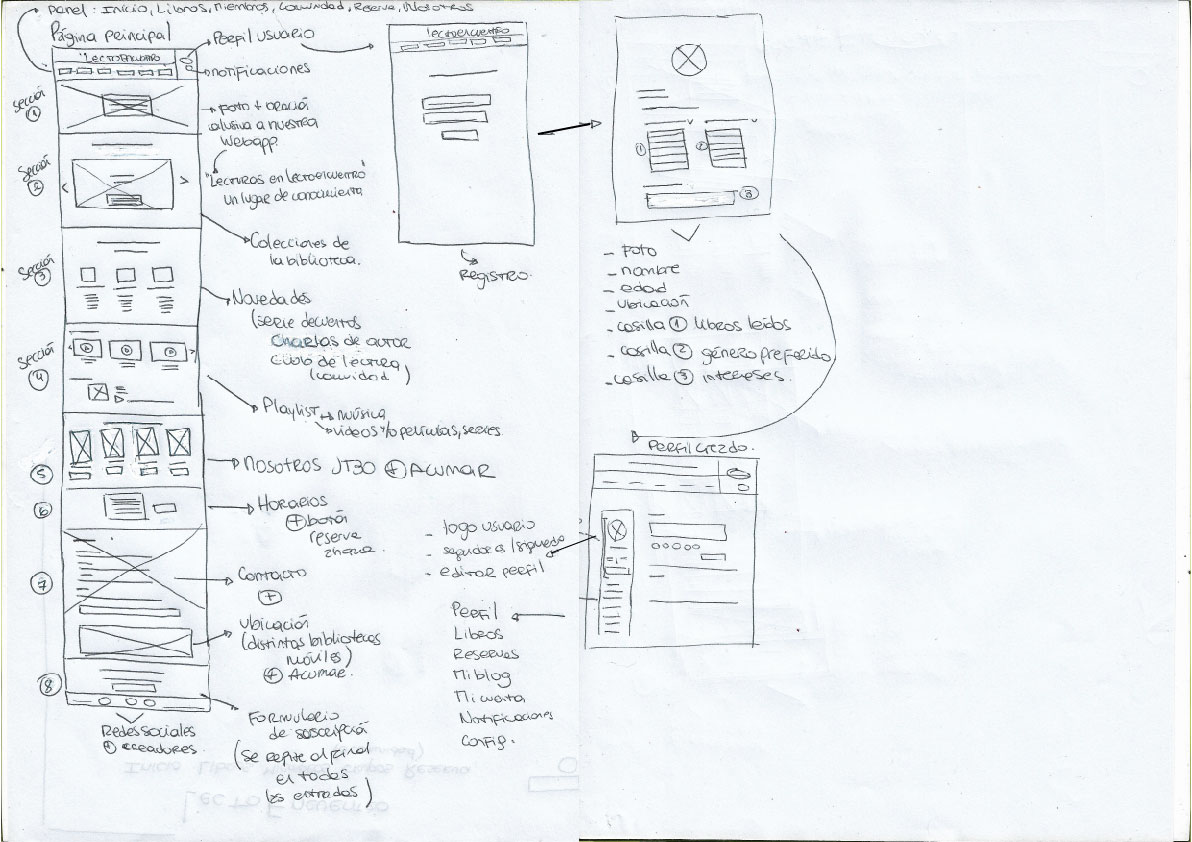 Panel: Inicio, Libros, Miembros, Comunidad, Reserva, Nosotros
Página principal
LECTOENCUENTRO
Perfil usuario
notificaciones
sección
1
foto + oración
alusiva a nuestra
webapp.
"Lecturas en lectoencuentro
un lugar de conocimiento"
sección
2
Colecciones de
la biblioteca.
sección
3
Novedades
(serie de cuentos
charlas de autor
Club de lectura
(comunidad)
sección
4
Playlist → música
videos y/o películas, series
5
Nosotros JT30 + Acumar
6
Horarios
+ botón
reserva
ahora.
7
Contacto
+
ubicación
(distintas bibliotecas
móviles)
+ Acumar.
8
Formulario
de suscripción
(se repite al final
en todas
las entradas)
Redes sociales
+ creadores.
Lectoencuentro
Registro.
1
2
3
- foto
- nombre
- edad
- ubicación
- casilla 1 libros leídos
- casilla 2 género preferido
- casilla 3 intereses.
Perfil creado.
- logo usuario
- seguidores/seguidos
- editar perfil
Perfil
Libros
Reservas
Mi blog
Mi cuenta
Notificaciones
Config.